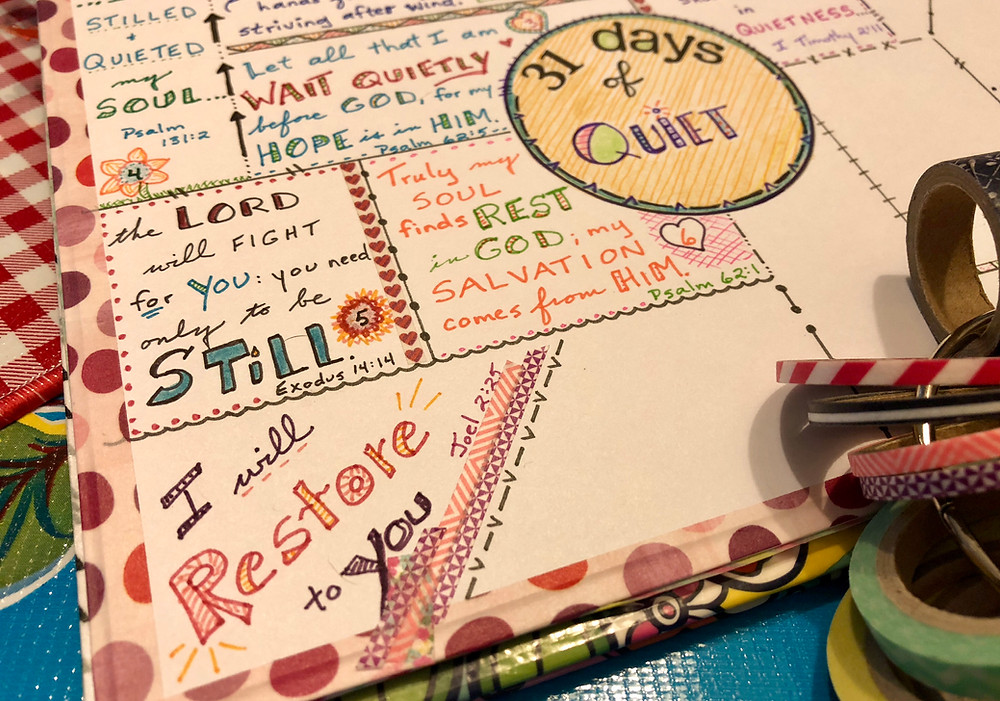 STILLED
+
QUIETED
my
SOUL
Psalm
131:2
4
striving after wind.
3
Let all that I am
WAIT QUIETLY
before GOD, for my
HOPE is in HIM.
Psalm 62:5
31 days
of
QUIET
in
QUIETNESS...
I Timothy 2:11
the LORD
will FIGHT
for YOU: you need
only to be
STILL
5
Exodus 14:14
Truly my
SOUL
finds REST
in GOD; my
SALVATION
comes from HIM.
6
Psalm 62:1
I will
Restore
to You
Joel 2:25